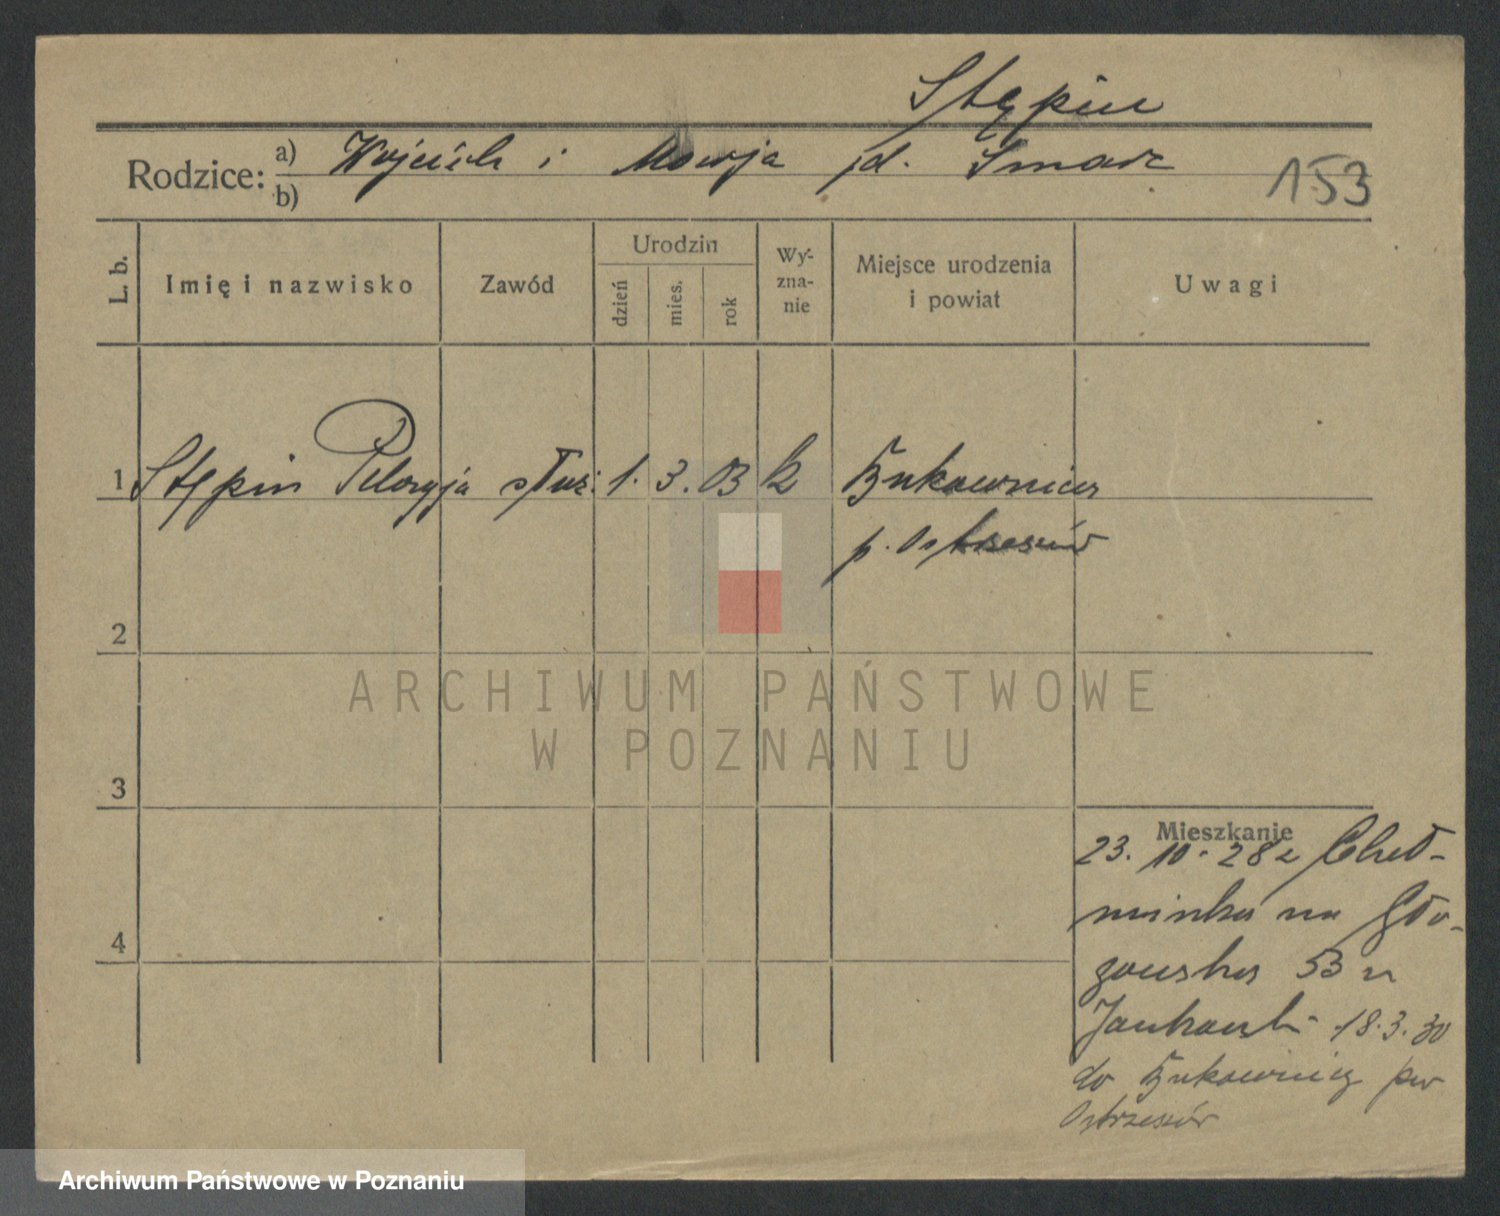 Stępin
Rodzice: a) Wojciech i Marja d. Smarz
b)
153
L. b. Imię i nazwisko Zawód Urodzin dzień mies. rok Wy-zna-nie Miejsce urodzenia i powiat Uwagi
1 Stępin Pelagja służ. 1. 3. 03 k Bukownica
p. Ostrzeszów
2
ARCHIWUM PAŃSTWOWE
W POZNANIU
3
Mieszkanie
23. 10. 28 z Cheł-
minka na Gło-
gowska 53 u
Jankowski 18.3.30
do Bukownicy pow
Ostrzeszów
4
Archiwum Państwowe w Poznaniu